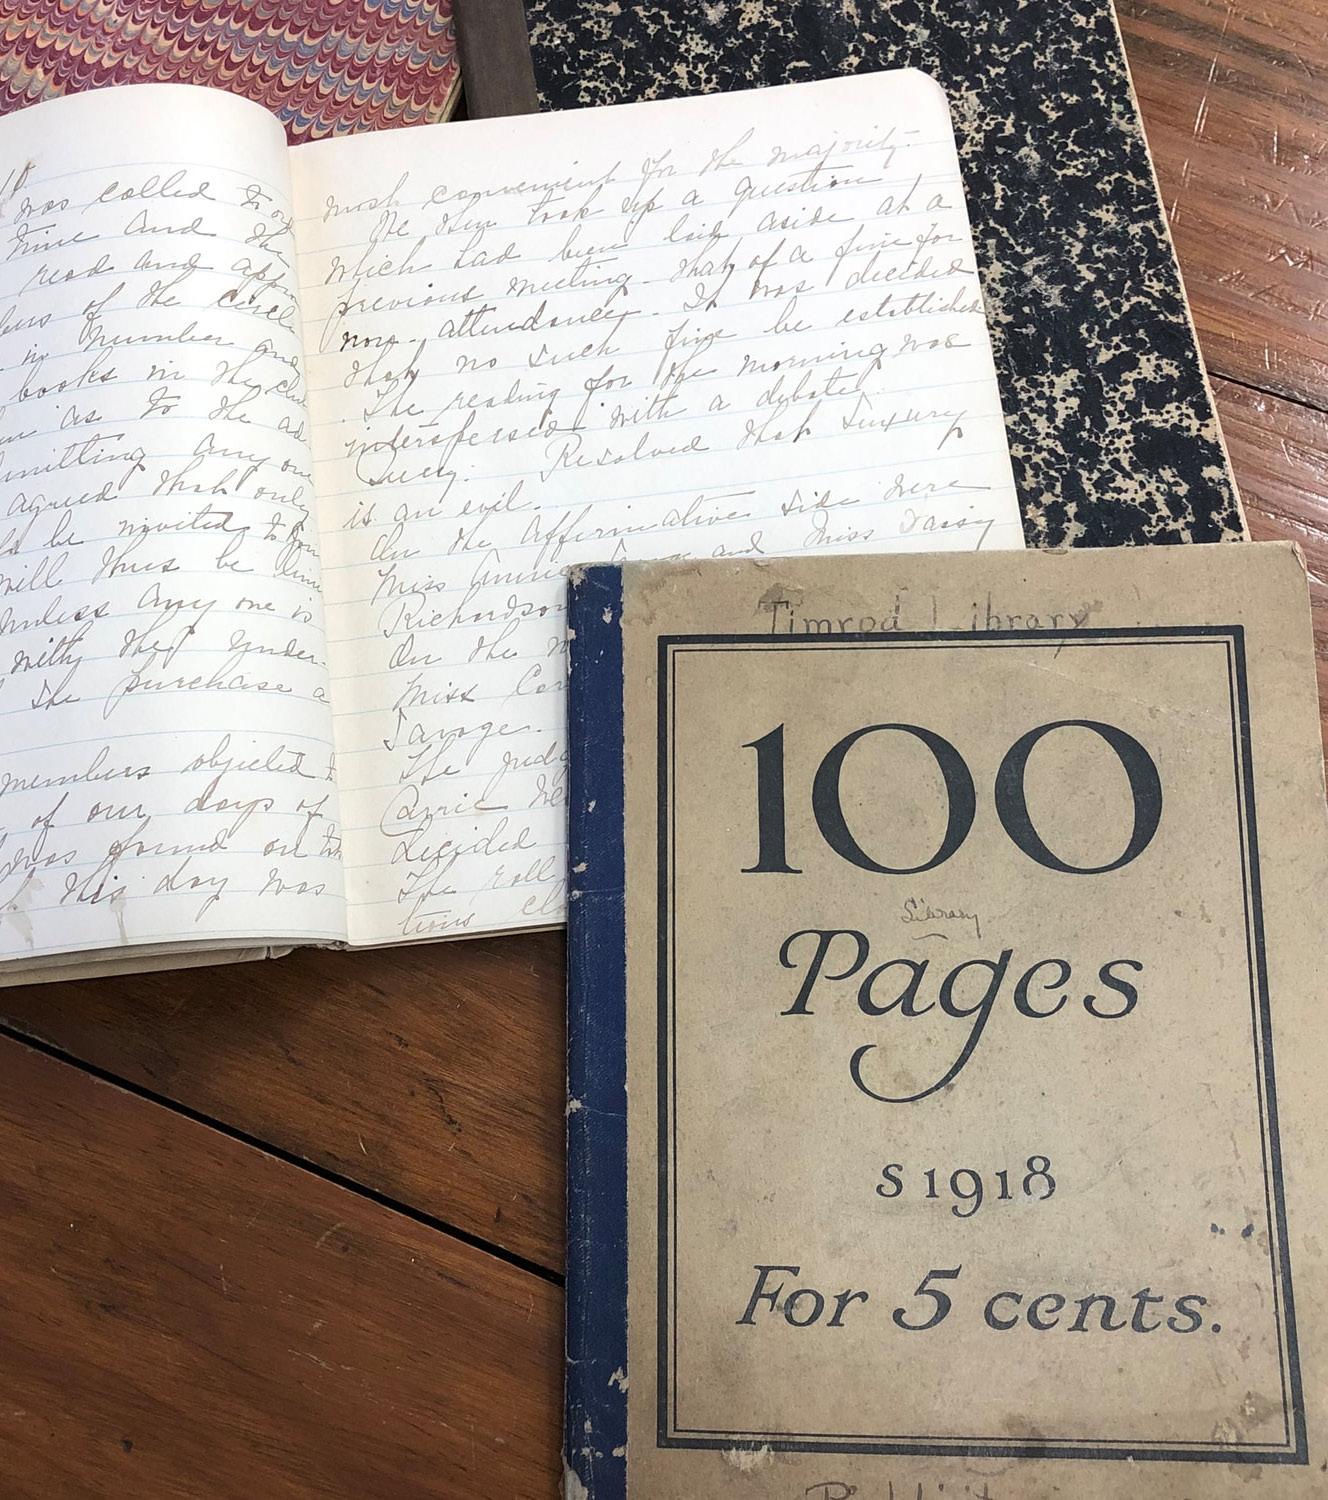 was called to
time and the
read and
of the circle
in number and
books in the
as to the
any one
agreed that only
be invited to
will thus be
unless any one is
with the under-
the purchase a
members objected
of our days of
was found on
this day was
most convenient for the majority.
We then took up a question
which had been laid aside at a
previous meeting - that of a fine for
non-attendance. It was decided
that no such fine be established
The reading for the morning was
interspersed with a debate.
Query. Resolved that Luxury
is an evil.
On the affirmative side were
Miss Annie and Miss Daisy
Richardson
On the
Miss
Savage.
The
Carrie
decided
The roll
Timrod Library
100
Library
Pages
S 1918
For 5 cents.